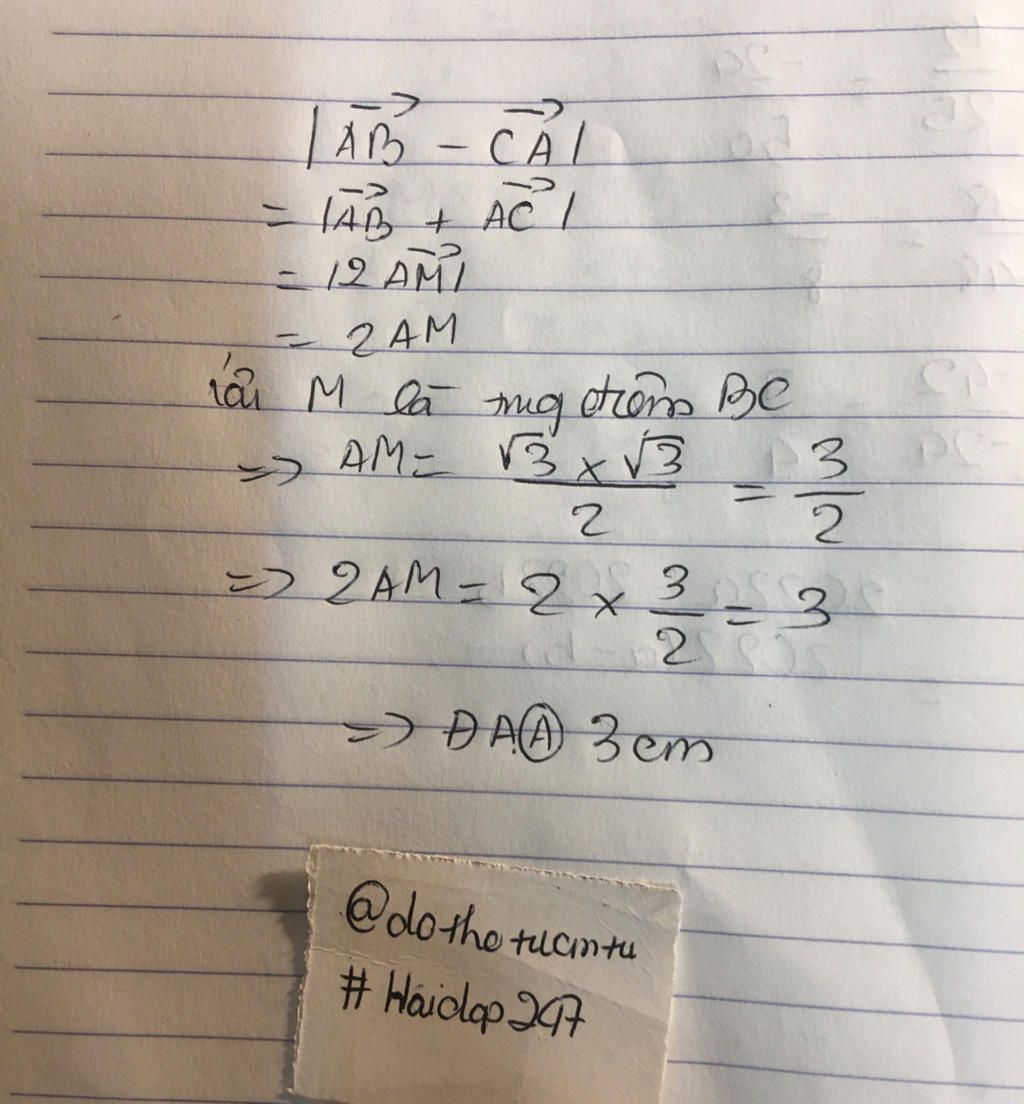 |AB→ - CA→|
= |AB→ + AC→|
= |2AM→|
= 2AM
với M là trung điểm BC
=> AM = √3 × √3 / 2 = 3/2
=> 2AM = 2 × 3/2 = 3
=> ĐA Ⓐ 3cm
@dothetuantu
#Hoidap247